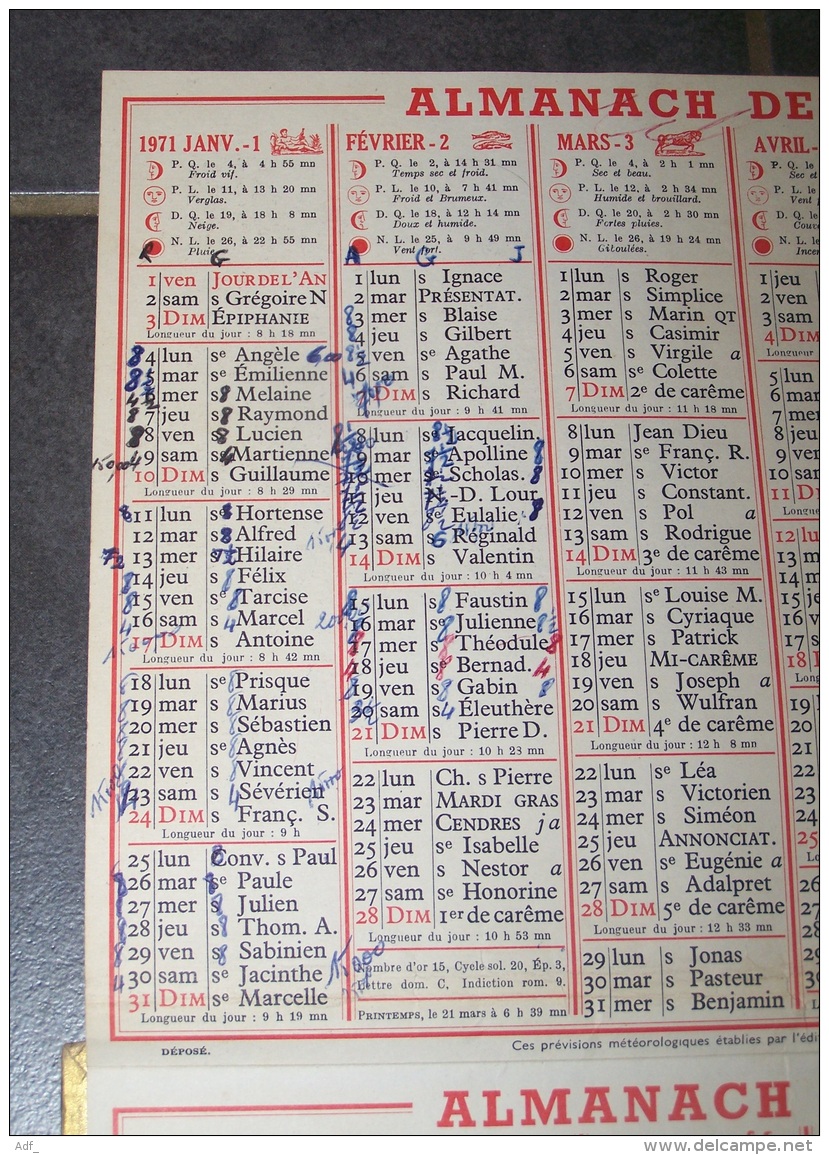 ALMANACH DE
1971 JANV.-1
P. Q. le 4, à 4 h 55 mn
Froid vif.
P. L. le 11, à 13 h 20 mn
Verglas.
D. Q. le 19, à 18 h 8 mn
Neige.
N. L. le 26, à 22 h 55 mn
Pluie
R G
1 ven JOUR DE L'AN
2 sam s Grégoire N
3 DIM ÉPIPHANIE
Longueur du jour : 8 h 18 mn
8 4 lun se Angèle
8 5 mar se Émilienne
6 mer s 8 Melaine
8 7 jeu s 8 Raymond
8 8 ven s 8 Lucien
4 9 sam s 4 Martienne
10 DIM s Guillaume
Longueur du jour : 8 h 29 mn
8 11 lun s 8 Hortense
12 mar s 8 Alfred
13 mer s Hilaire
8 14 jeu s 8 Félix
8 15 ven se 8 Tarcise
4 16 sam s 4 Marcel
17 DIM s Antoine
Longueur du jour : 8 h 42 mn
8 18 lun se 8 Prisque
8 19 mar s 8 Marius
8 20 mer s 8 Sébastien
8 21 jeu se 8 Agnès
22 ven s 8 Vincent
23 sam s 4 Sévérien
24 DIM s Franç. S.
Longueur du jour : 9 h
25 lun Conv. s Paul
8 26 mar se Paule
8 27 mer s 8 Julien
8 28 jeu s 8 Thom. A.
8 29 ven s 8 Sabinien
4 30 sam se Jacinthe
31 DIM se Marcelle
Longueur du jour : 9 h 19 mn
FÉVRIER-2
P. Q. le 2, à 14 h 31 mn
Temps sec et froid.
P. L. le 10, à 7 h 41 mn
Froid et Brumeux.
D. Q. le 18, à 12 h 14 mn
Doux et humide.
N. L. le 25, à 9 h 49 mn
Vent fort.
A G J
1 lun s Ignace
2 mar PRÉSENTAT.
8 3 mer s Blaise
8 4 jeu s Gilbert
5 ven se Agathe
4 6 sam s Paul M.
7 DIM s Richard
Longueur du jour : 9 h 41 mn
8 lun s Jacquelin.
9 mar s Apolline 8
10 mer se Scholas. 8
11 jeu N.-D. Lour.
12 ven se Eulalie 8
4 13 sam s 6 Réginald
14 DIM s Valentin
Longueur du jour : 10 h 4 mn
15 lun s 8 Faustin 8
16 mar se 8 Julienne
17 mer s 8 Théodule 8
18 jeu se 8 Bernad. 4
8 19 ven s 8 Gabin 8
20 sam s 4 Éleuthère
21 DIM s Pierre D.
Longueur du jour : 10 h 23 mn
22 lun Ch. s Pierre
23 mar MARDI GRAS
24 mer CENDRES j a
25 jeu se Isabelle
26 ven s Nestor a
27 sam se Honorine
28 DIM 1er de carême
Longueur du jour : 10 h 53 mn
Nombre d'or 15, Cycle sol. 20, Ép. 3,
Lettre dom. C, Indiction rom. 9.
PRINTEMPS, le 21 mars à 6 h 39 mn
MARS-3
P. Q. le 4, à 2 h 1 mn
Sec et beau.
P. L. le 12, à 2 h 34 mn
Humide et brouillard.
D. Q. le 20, à 2 h 30 mn
Fortes pluies.
N. L. le 26, à 19 h 24 mn
Giboulées.
1 lun s Roger
2 mar s Simplice
3 mer s Marin QT
4 jeu s Casimir
5 ven s Virgile a
6 sam se Colette
7 DIM 2e de carême
Longueur du jour : 11 h 18 mn
8 lun Jean Dieu
9 mar se Franç. R.
10 mer s Victor
11 jeu s Constant.
12 ven s Pol a
13 sam s Rodrigue
14 DIM 3e de carême
Longueur du jour : 11 h 43 mn
15 lun se Louise M.
16 mar s Cyriaque
17 mer s Patrick
18 jeu MI-CARÊME
19 ven s Joseph a
20 sam s Wulfran
21 DIM 4e de carême
Longueur du jour : 12 h 8 mn
22 lun se Léa
23 mar s Victorien
24 mer s Siméon
25 jeu ANNONCIAT.
26 ven se Eugénie a
27 sam s Adalpret
28 DIM 5e de carême
Longueur du jour : 12 h 33 mn
29 lun s Jonas
30 mar s Pasteur
31 mer s Benjamin
AVRIL-
P. Q.
Sec et
P. L.
Vent
D. Q.
N. L.
1 jeu
2 ven
3 sam
4 DIM
Longueur
5 lun
6 mar
7 mer
8 jeu
9 ven
10 sam
11 DIM
12 lun
13 mar
14 mer
15 jeu
16 ven
17 sam
18 DIM
19 lun
DÉPOSÉ.
Ces prévisions météorologiques établies par l'édi
ALMANACH
Adf_
www.delcampe.net